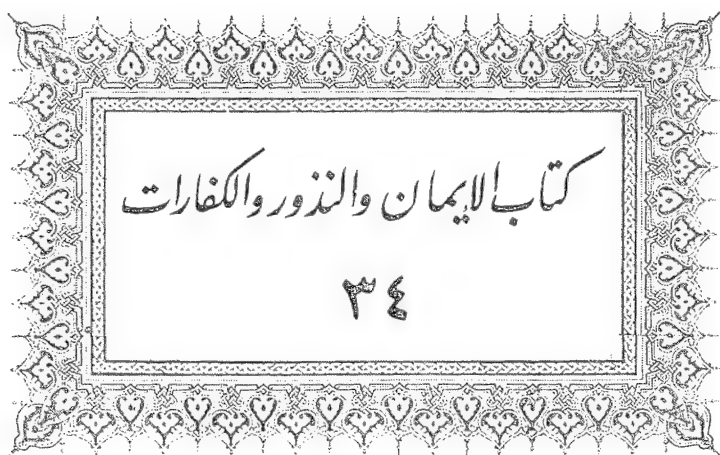 كتاب الإيمان والنذور والكفارات
٣٤